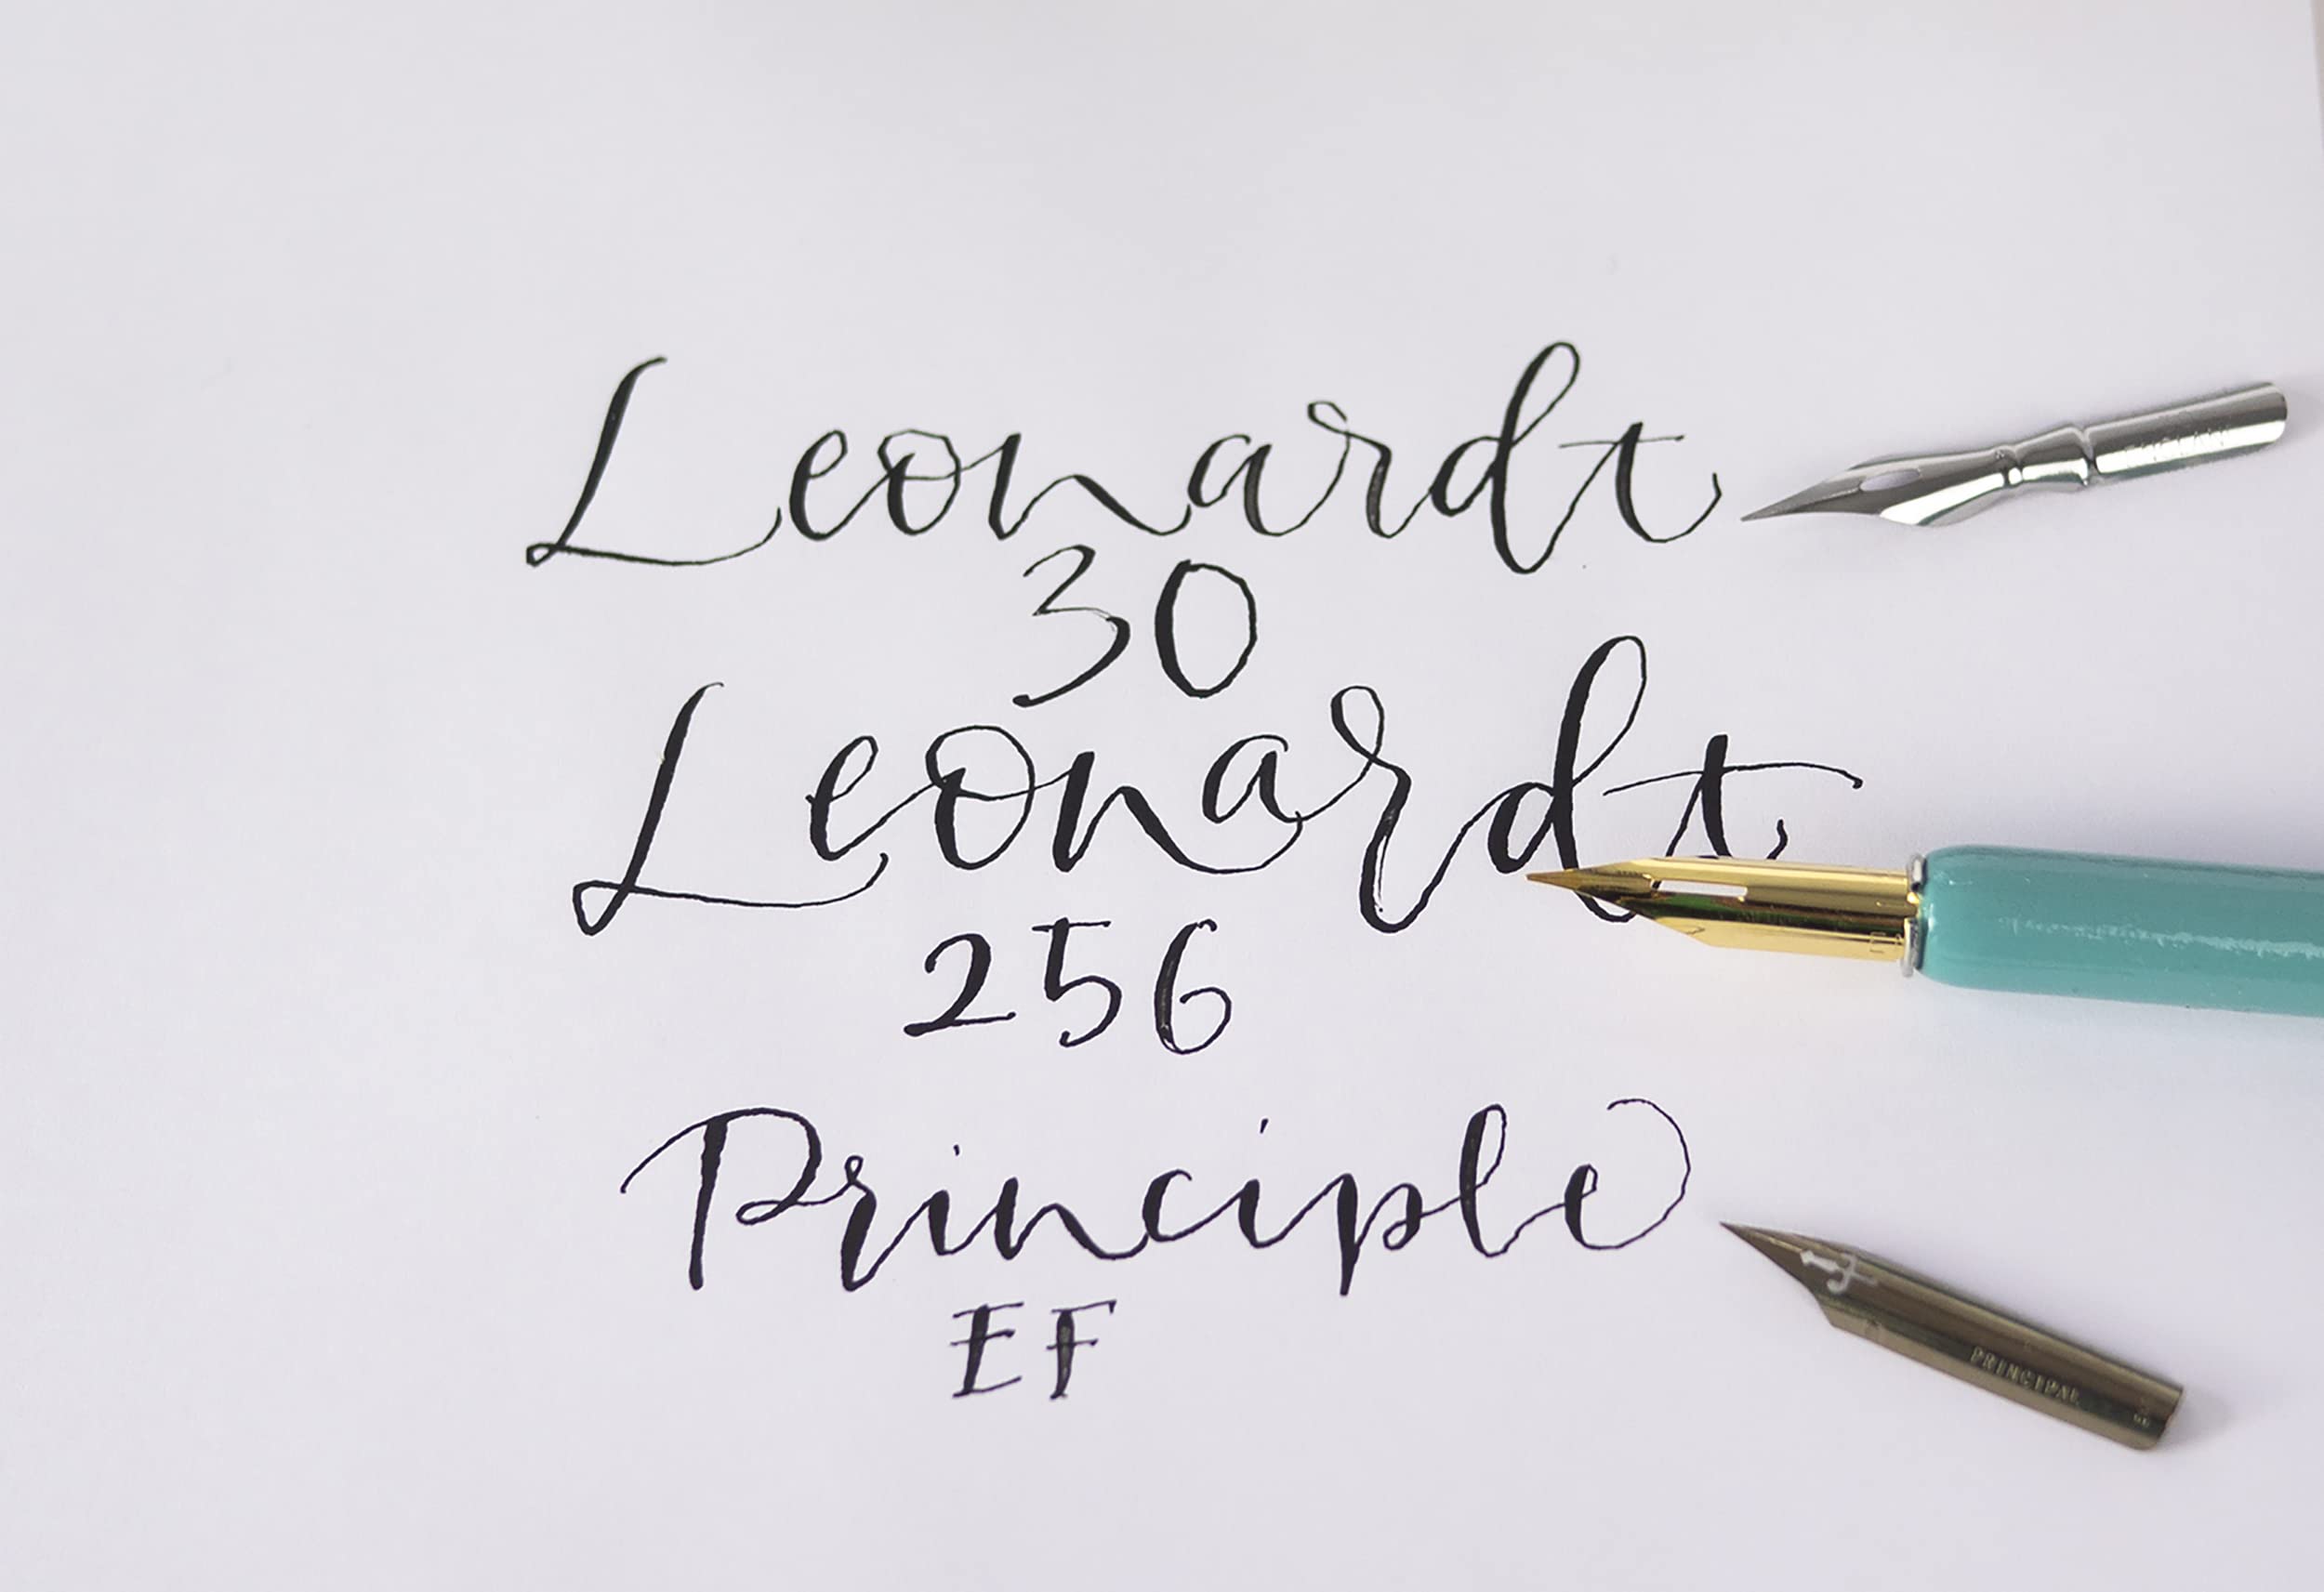 Leonardt
30
Leonardt
256
Principle
EF
PRINCIPAL